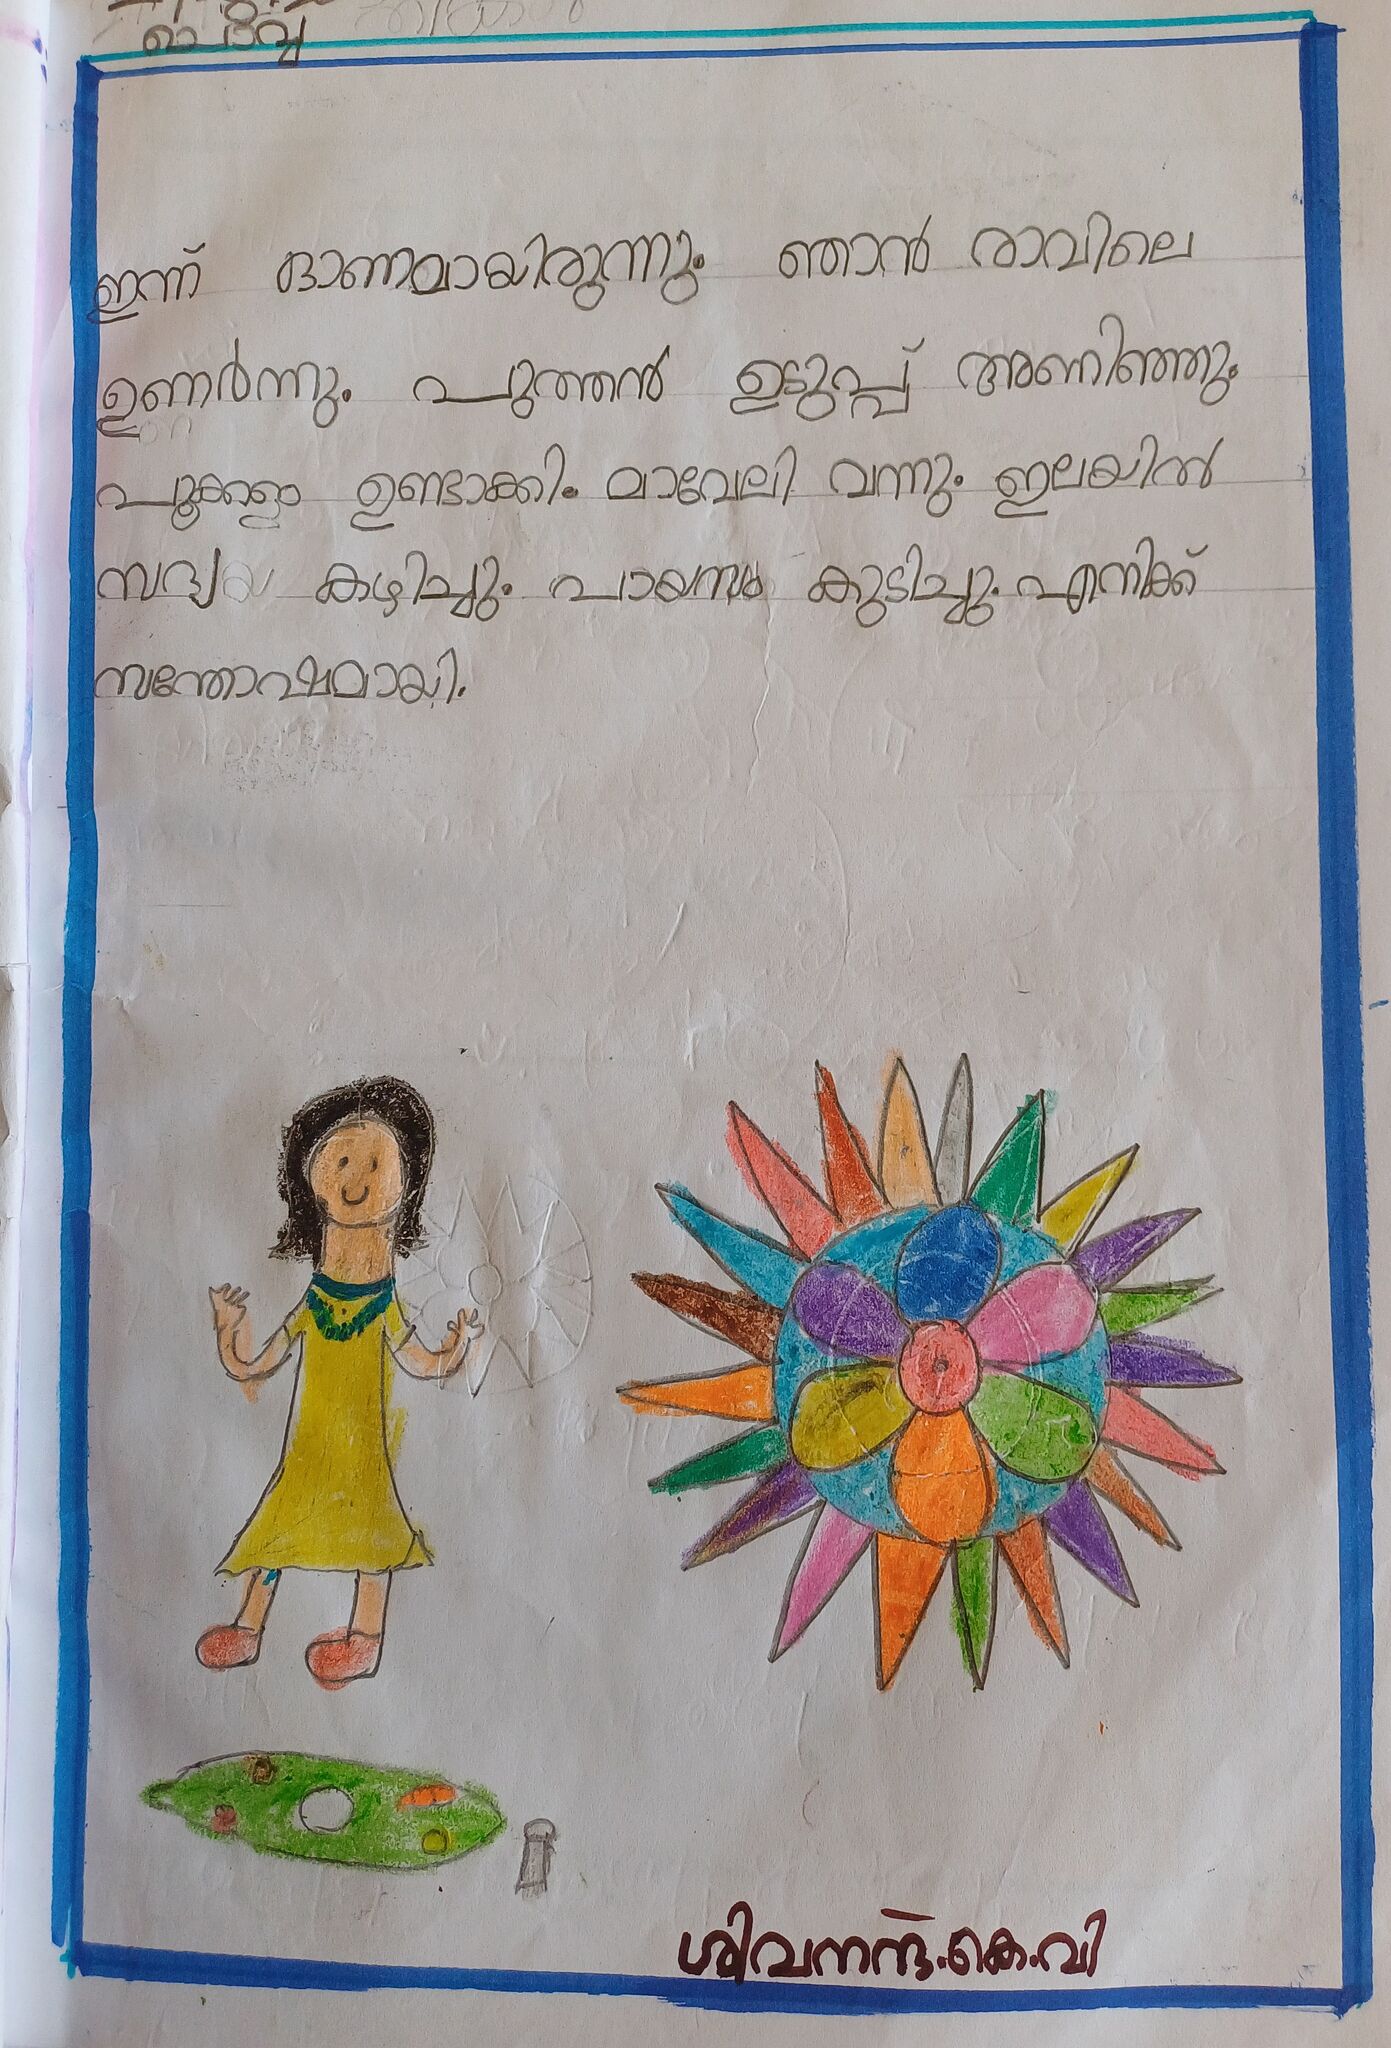 ചൊവ്വ
ഇന്ന് ഓണമായിരുന്നു. ഞാൻ രാവിലെ
ഉണർന്നു. പുത്തൻ ഉടുപ്പ് അണിഞ്ഞു.
പൂക്കളം ഉണ്ടാക്കി. മാവേലി വന്നു. ഇലയിൽ
സദ്യ കഴിച്ചു. പായസം കുടിച്ചു. എനിക്ക്
സന്തോഷമായി.
ശിവനന്ദ്.കെ.വി